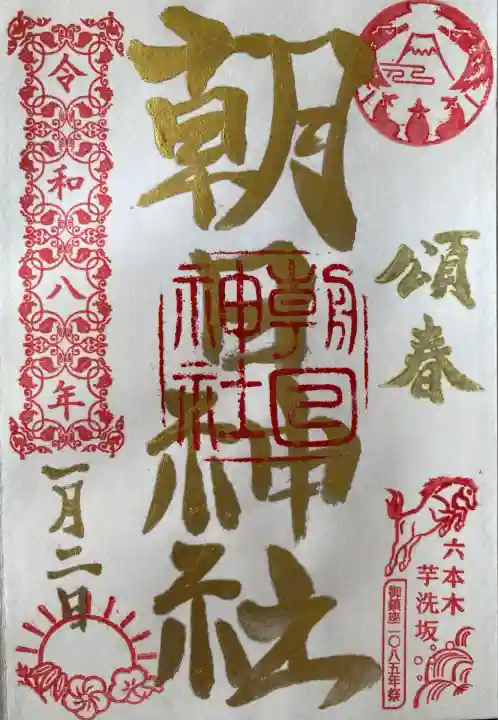 頌春
六本木
芋洗坂
御鎮座一〇八五年祭
朝日神社
朝日
神社
令和八年
一月二日